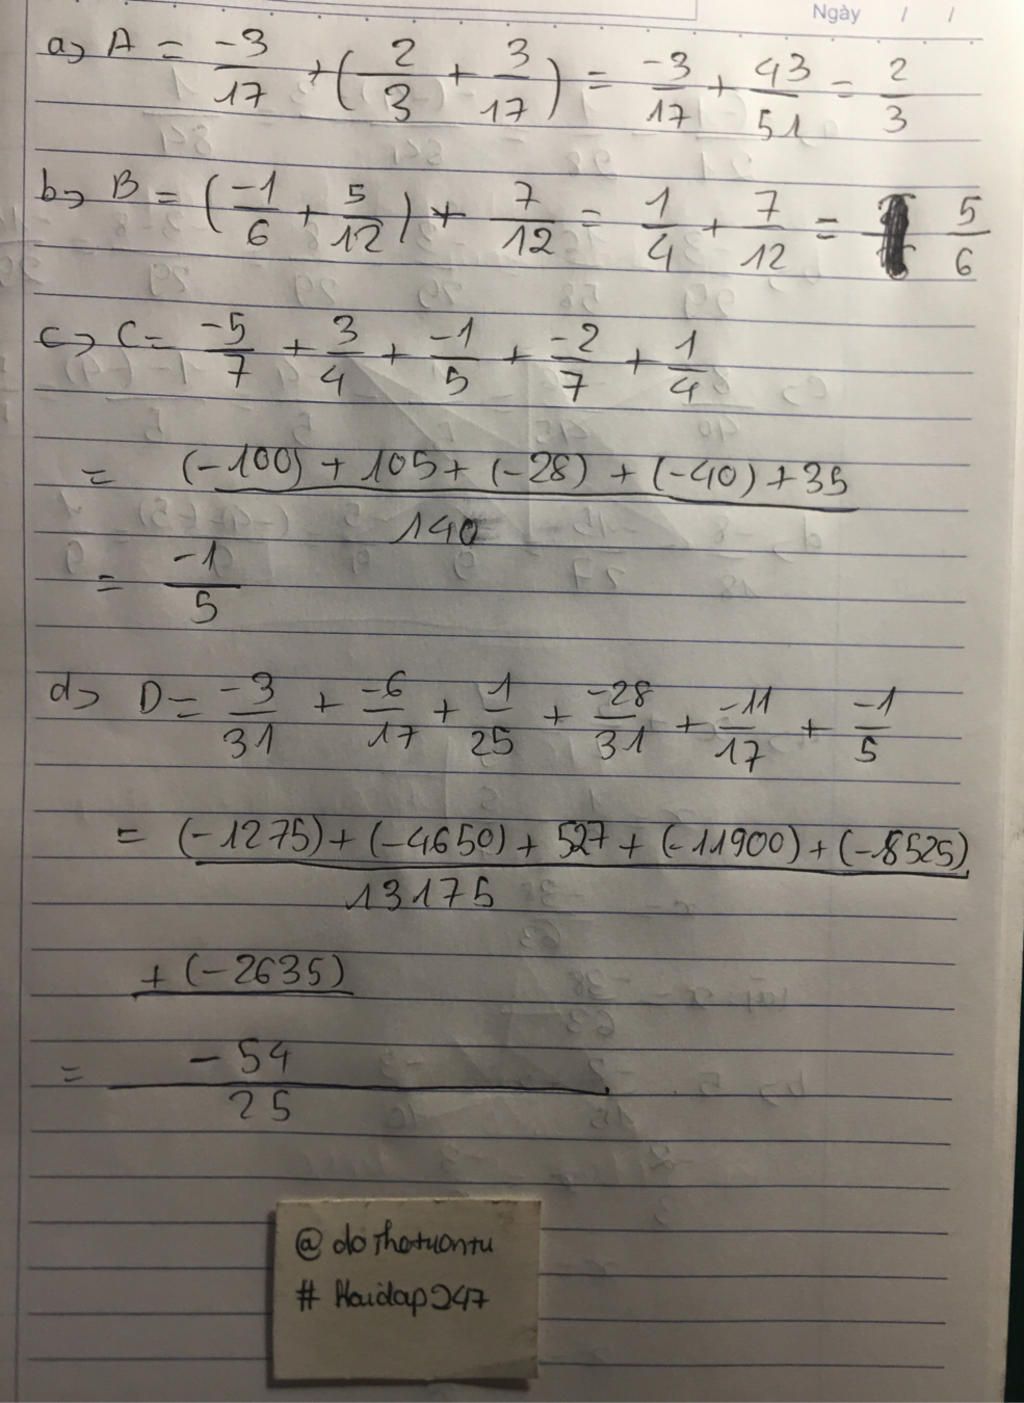 Ngày / /
a) A = -3/17 + (2/3 + 3/17) = -3/17 + 43/51 = 2/3
b) B = (-1/6 + 5/12) + 7/12 = 1/4 + 7/12 = 5/6
c) C = -5/7 + 3/4 + -1/5 + -2/7 + 1/4
= (-100) + 105 + (-28) + (-40) + 35 / 140
= -1/5
d) D = -3/31 + -6/17 + 1/25 + -28/31 + -11/17 + -1/5
= (-1275) + (-4650) + 527 + (-11900) + (-8525) / 13175
+ (-2635)
= -54/25
@ dothotuontu
# Hoidap247